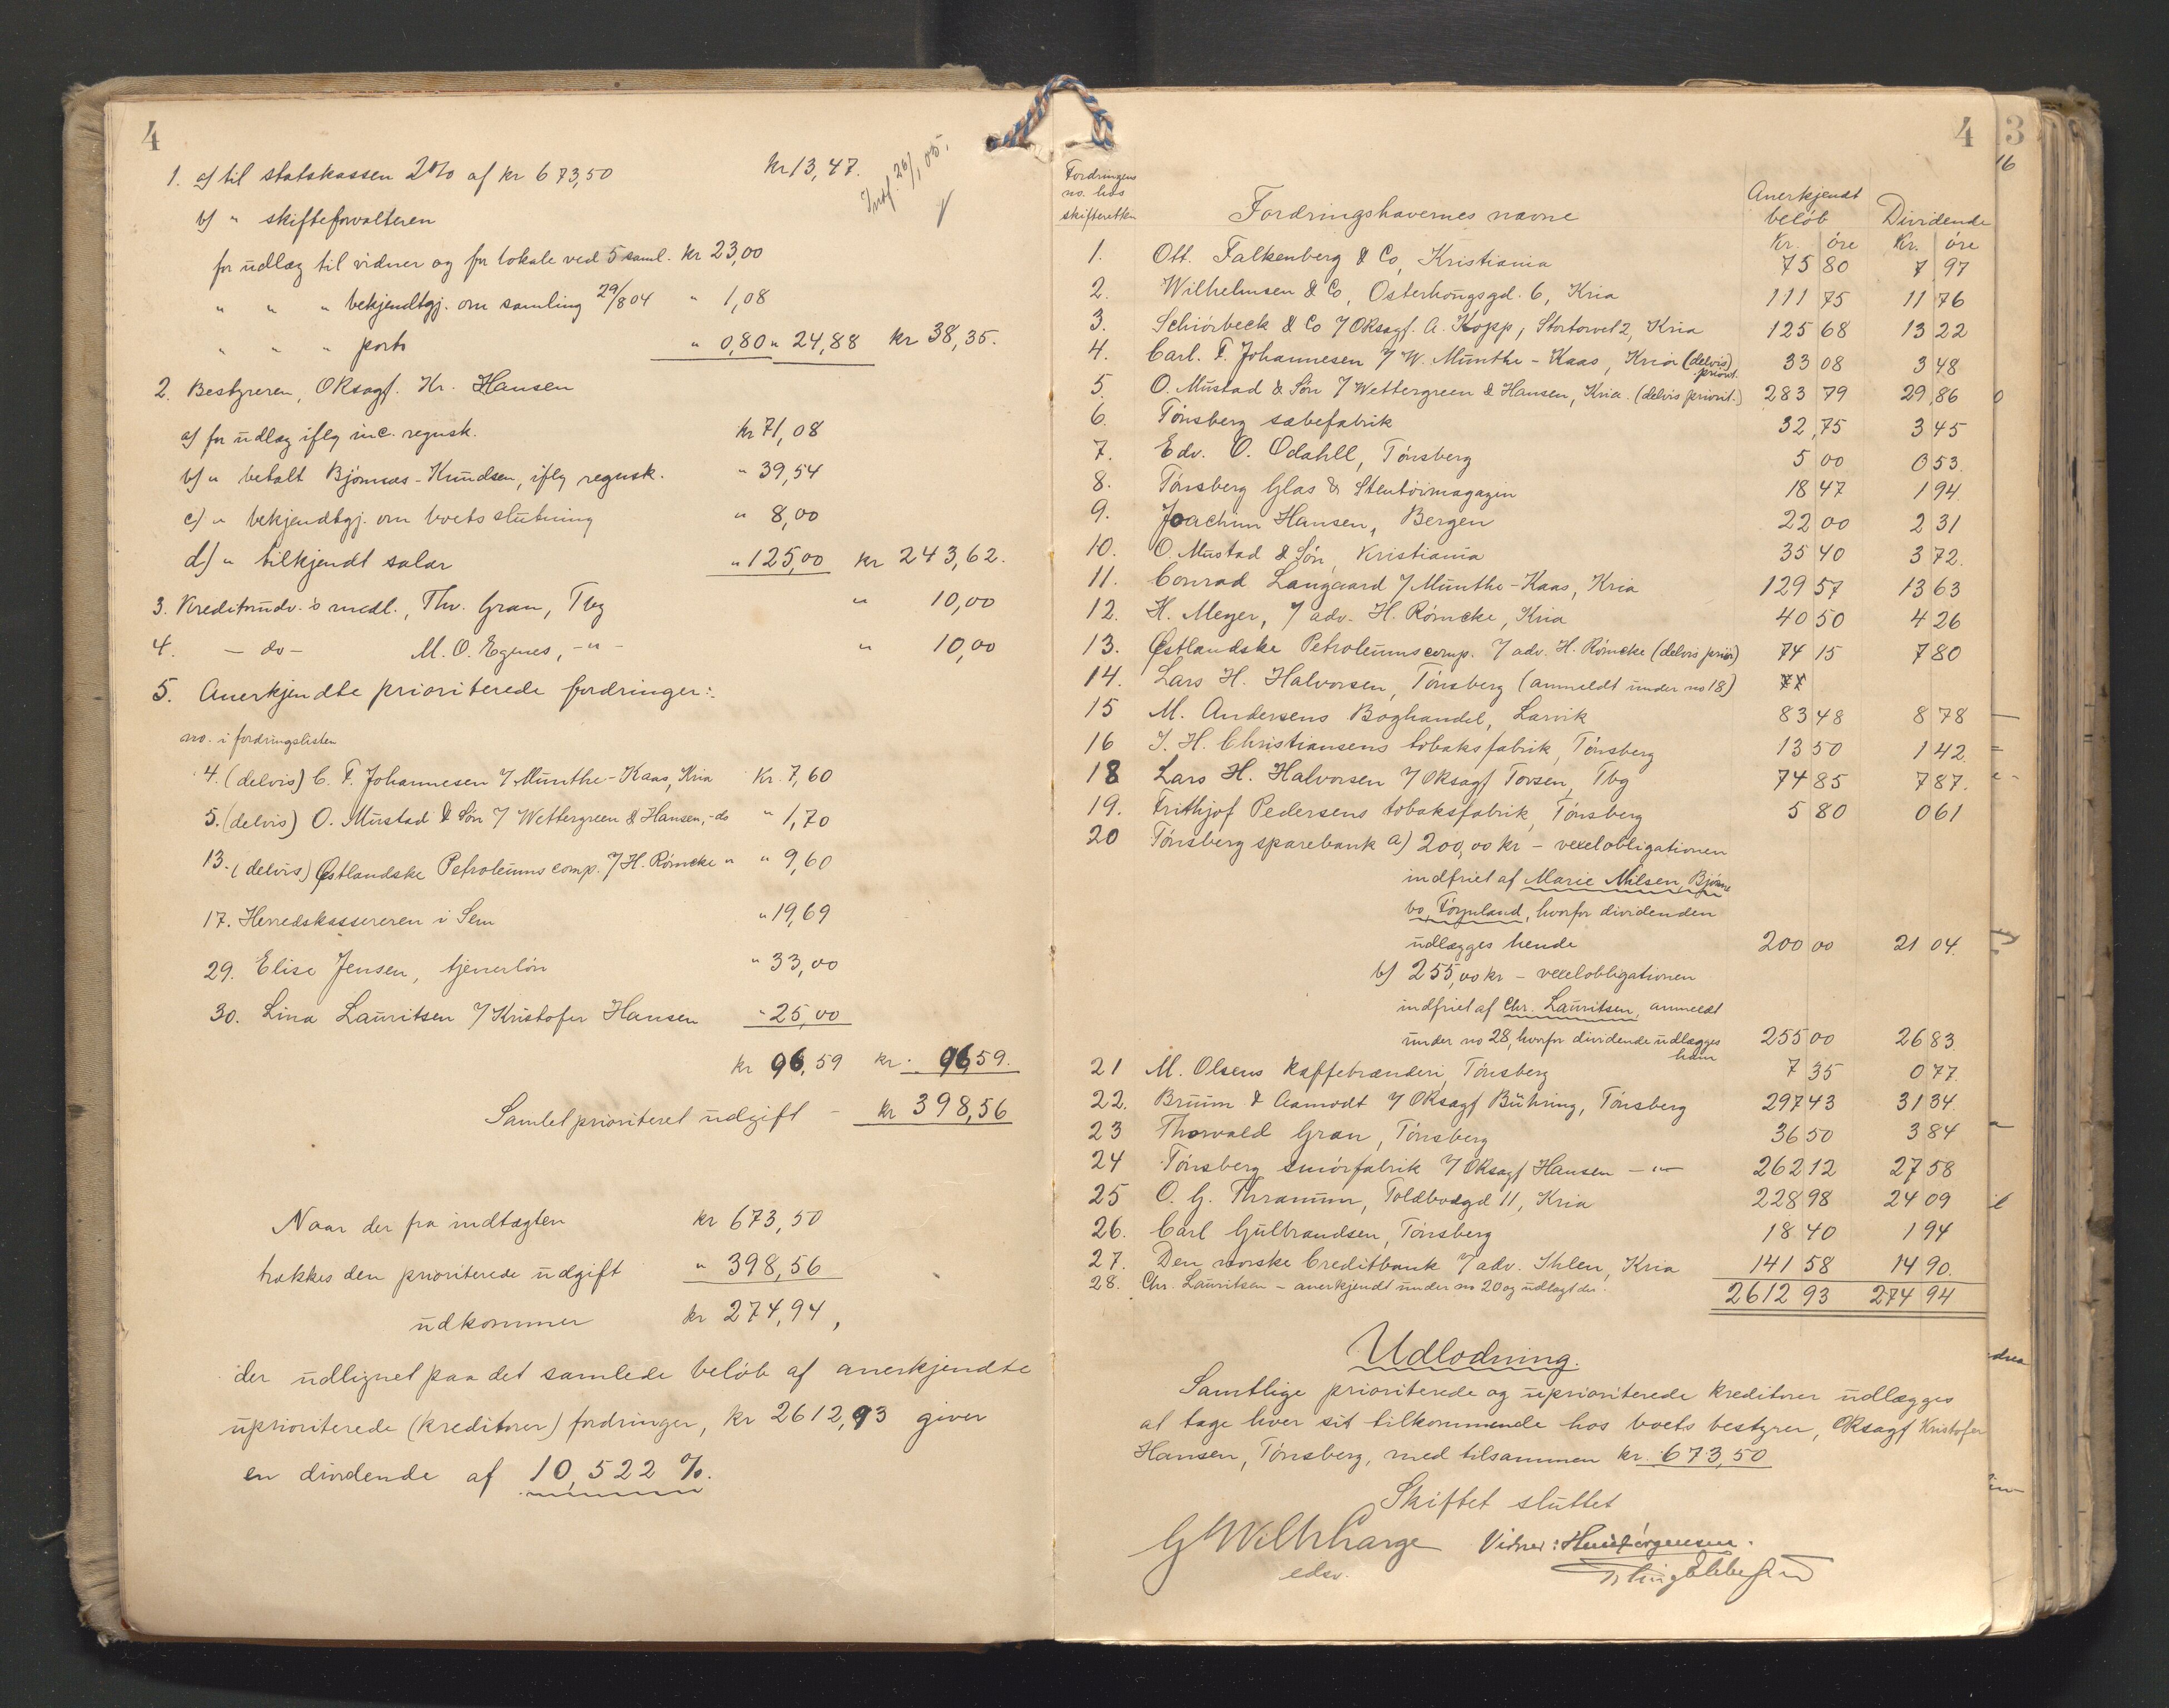 4
1. a) til statskassen 2% af kr 673,50 kr 13,47.
Indf. 26/1 05.
b) " skifteforvalteren
for udlæg til vidner og for lokale ved 5 saml. kr 23,00
" " " bekjendtgj. om samling 29/8 04 " 1,08
" " " porto " 0,80 " 24,88 kr 38,35.
2. Bestyreren, OKsagf. Kr. Hansen
a) for udlæg iflg inc. regnsk. kr 71,08
b) " betalt Bjørnaas-Knudsen, iflg regnsk. " 39,54
c) " bekjendtgj. om boets slutning " 8,00
d) " tilkjendt salær " 125,00 kr 243,62.
3. Kreditorudv.'s medl., Thv. Gran, Tbg " 10,00
4. - do - M. O. Egenes, - " - " 10,00
5. Anerkjendte prioriterede fordringer:
no. i fordringslisten
4. (delvis) C. F. Johannesen v/ Munthe-Kaas, Kria Kr. 7,60
5. (delvis) O. Mustad & Søn v/ Wettergreen & Hansen, - do " 1,70
13. (delvis) Østlandske Petroleumscomp. v/ H. Römcke " " 9,60
17. Herredskassereren i Sem " 19,69
29. Elise Jensen, tjenerløn " 33,00
30. Lina Lauritsen v/ Kristofer Hansen " 25,00
kr 96,59 kr. 96,59.
Samlet prioriteret udgift - kr 398,56
Naar der fra indtægten kr 673,50
trækkes den prioriterede udgift " 398,56
udkommer kr 274,94,
der udlignet paa det samlede beløb af anerkjendte
uprioriterede (kreditorer) fordringer, kr 2612,93 giver
en dividende af 10,522 %.
4
3
Fordringens no. hos skifteretten Fordringshavernes navne Anerkjendt beløb Dividende
Kr. øre Kr. øre
1. Ott. Falkenberg & Co, Kristiania 75 80 7 97
2. Wilhelmsen & Co, Osterhougsgd. 6, Kria 111 75 11 76
3. Schiørbeck & Co v/ OKsagf. A. Kopp, Stortorvet 2, Kria 125 68 13 22
4. Carl. F. Johannesen v/ W. Munthe-Kaas, Kria (delvis priorit.) 33 08 3 48
5. O. Mustad & Søn v/ Wettergreen & Hansen, Kria. (delvis priorit.) 283 79 29,86
6. Tønsberg sæbefabrik 32,75 3 45
7. Edv. O. Odahll, Tønsberg 5 00 0 53.
8. Tønsberg Glas & Stentøimagazin 18 47 1 94.
9. Joachim Hansen, Bergen 22 00 2 31
10. O. Mustad & Søn, Kristiania 35 40 3 72.
11. Conrad Langaard v/ Munthe-Kaas, Kria 129 57 13 63
12. H. Meyer, v/ adv. H. Römcke, Kria 40 50 4 26
13. Østlandske Petroleumscomp. v/ adv. H. Römcke (delvis prior) 74 15 7 80
14. Lars H. Halvorsen, Tønsberg (anmeldt under no 18)
15 M. Andersens Boghandel, Larvik 83 48 8 78
16 J. H. Christiansens tobaksfabrik, Tønsberg 13 50 1 42.
18 Lars H. Halvorsen v/ OKsagf Torsen, Tbg 74 85 7 87.
19. Frithjof Pedersens tobaksfabrik, Tønsberg 5 80 0 61
20 Tønsberg sparebank a) 200,00 kr - vexelobligationen
indfriet af Marie Nilsen, Bjørne
bo, Tørnland, hvorfor dividenden
udlægges hende 200 00 21 04.
b) 255,00 kr - vexelobligationen
indfriet af Chr. Lauritsen, anmeldt
under no 28, hvorfor dividende udlægges ham 255 00 26 83.
21 M. Olsens kaffebrænderi, Tønsberg 7 35 0 77.
22. Bruun & Aamodt v/ OKsagf Bühring, Tønsberg 297 43 31 34.
23 Thorvald Gran, Tønsberg 36 50 3 84
24 Tønsberg smørfabrik v/ OKsagf Hansen - " - 262 12 27 58
25 O. G. Thranum, Toldbodgd 11, Kria 228 98 24 09
26. Carl Gulbrandsen, Tønsberg 18 40 1 94
27. Den norske Creditbank v/ adv. Ihlen, Kria 141 58 14 90.
28. Chr. Lauritsen - anerkjendt under no 20 og udlagt der. 2612 93 274 94
Udlodning.
Samtlige prioriterede og uprioriterede kreditorer udlægges
at tage hver sit tilkommende hos boets bestyrer, OKsagf Kristofer
Hansen, Tønsberg, med tilsammen kr. 673,50
Skiftet sluttet
Vidner:
edsv.